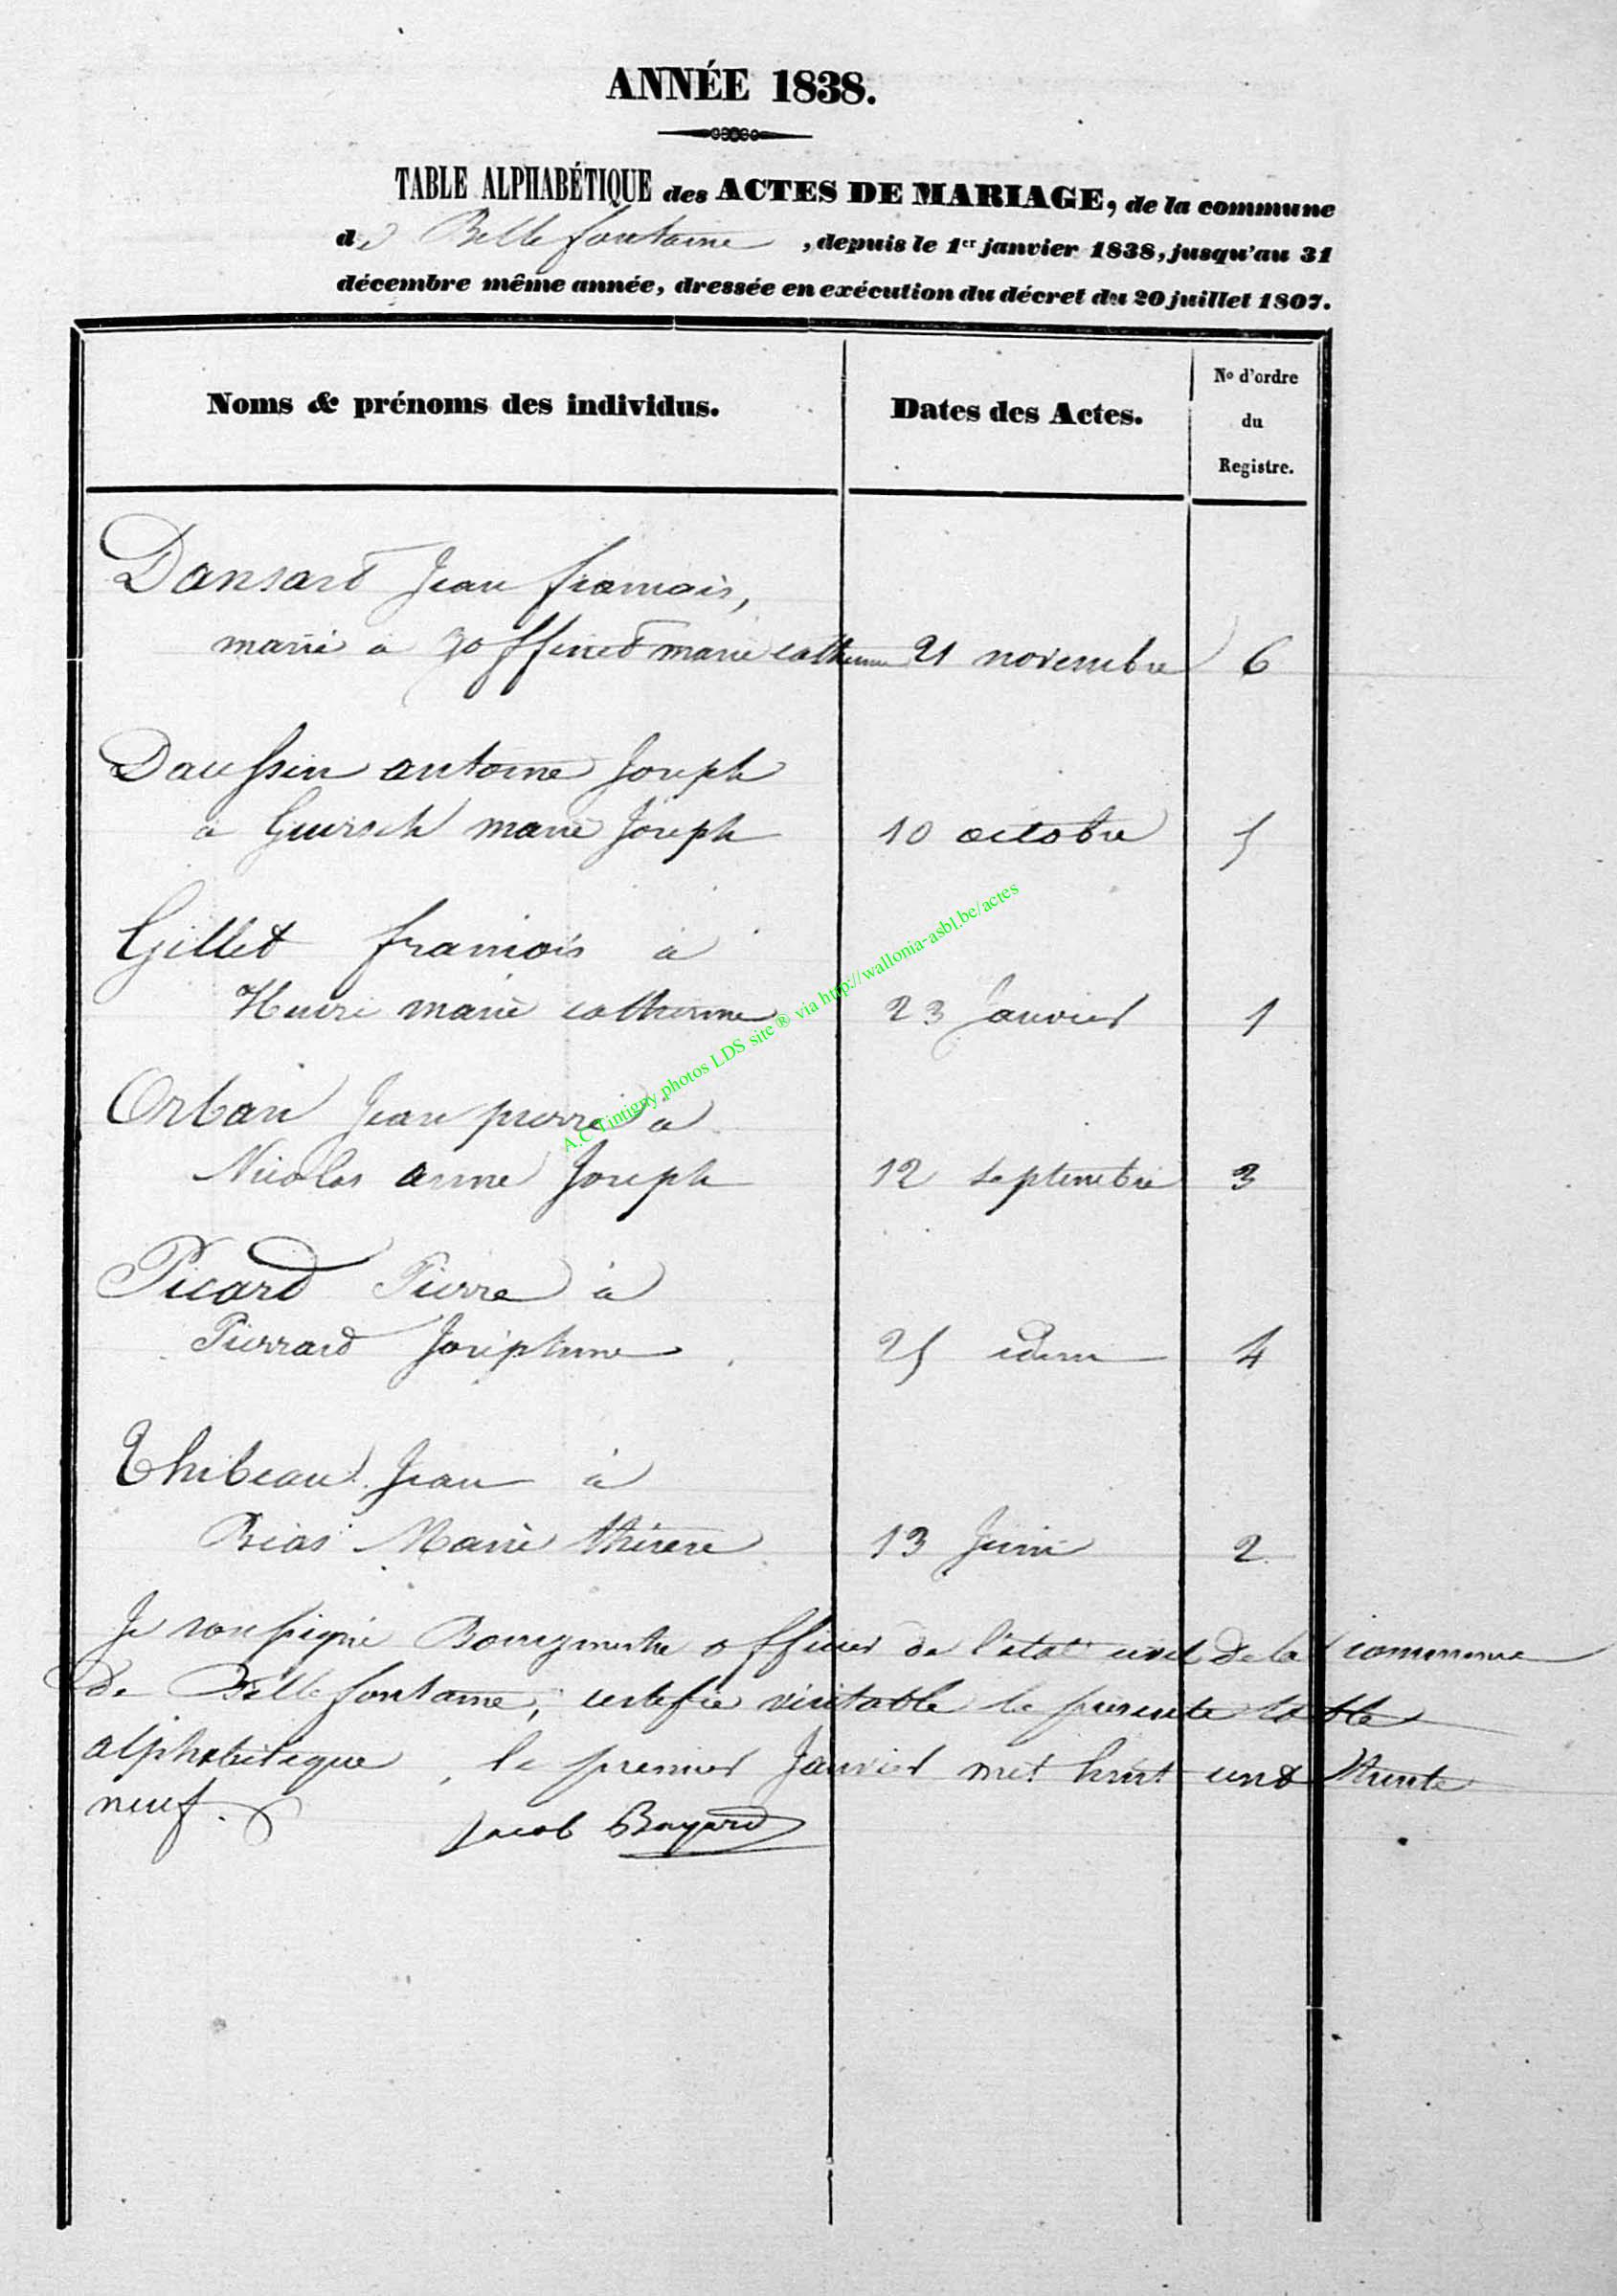 ANNÉE 1838.
TABLE ALPHABÉTIQUE des ACTES DE MARIAGE, de la commune
de Bellefontaine, depuis le 1er janvier 1838, jusqu'au 31
décembre même année, dressée en exécution du décret du 20 juillet 1807.
Noms & prénoms des individus. Dates des Actes. No d'ordre du Registre.
Dansard Jean francois,
marié a goffinet marie catherine 21 novembre 6
Daussin antoine Joseph
a Guirsch marie Joseph 10 octobre 5
Gillet francois a
marie catherine 23 Janvier 1
Orban Jean pierre a
Nicolas anne Joseph 12 septembre 3
Picard Pierre à
Pierrard Joséphine 25 idem 4
Thibeau Jean à
Bias Marie thérese 13 Juin 2
Je soussigné Bourgmestre officier de l'état civil de la commune
de Bellefontaine, certifie véritable la présente table
alphabétique, le premier Janvier mil huit cent trente
neuf.
Jacob Bayard
A.C Tintigny photos LDS site ® via http://wallonia-asbl.be/actes